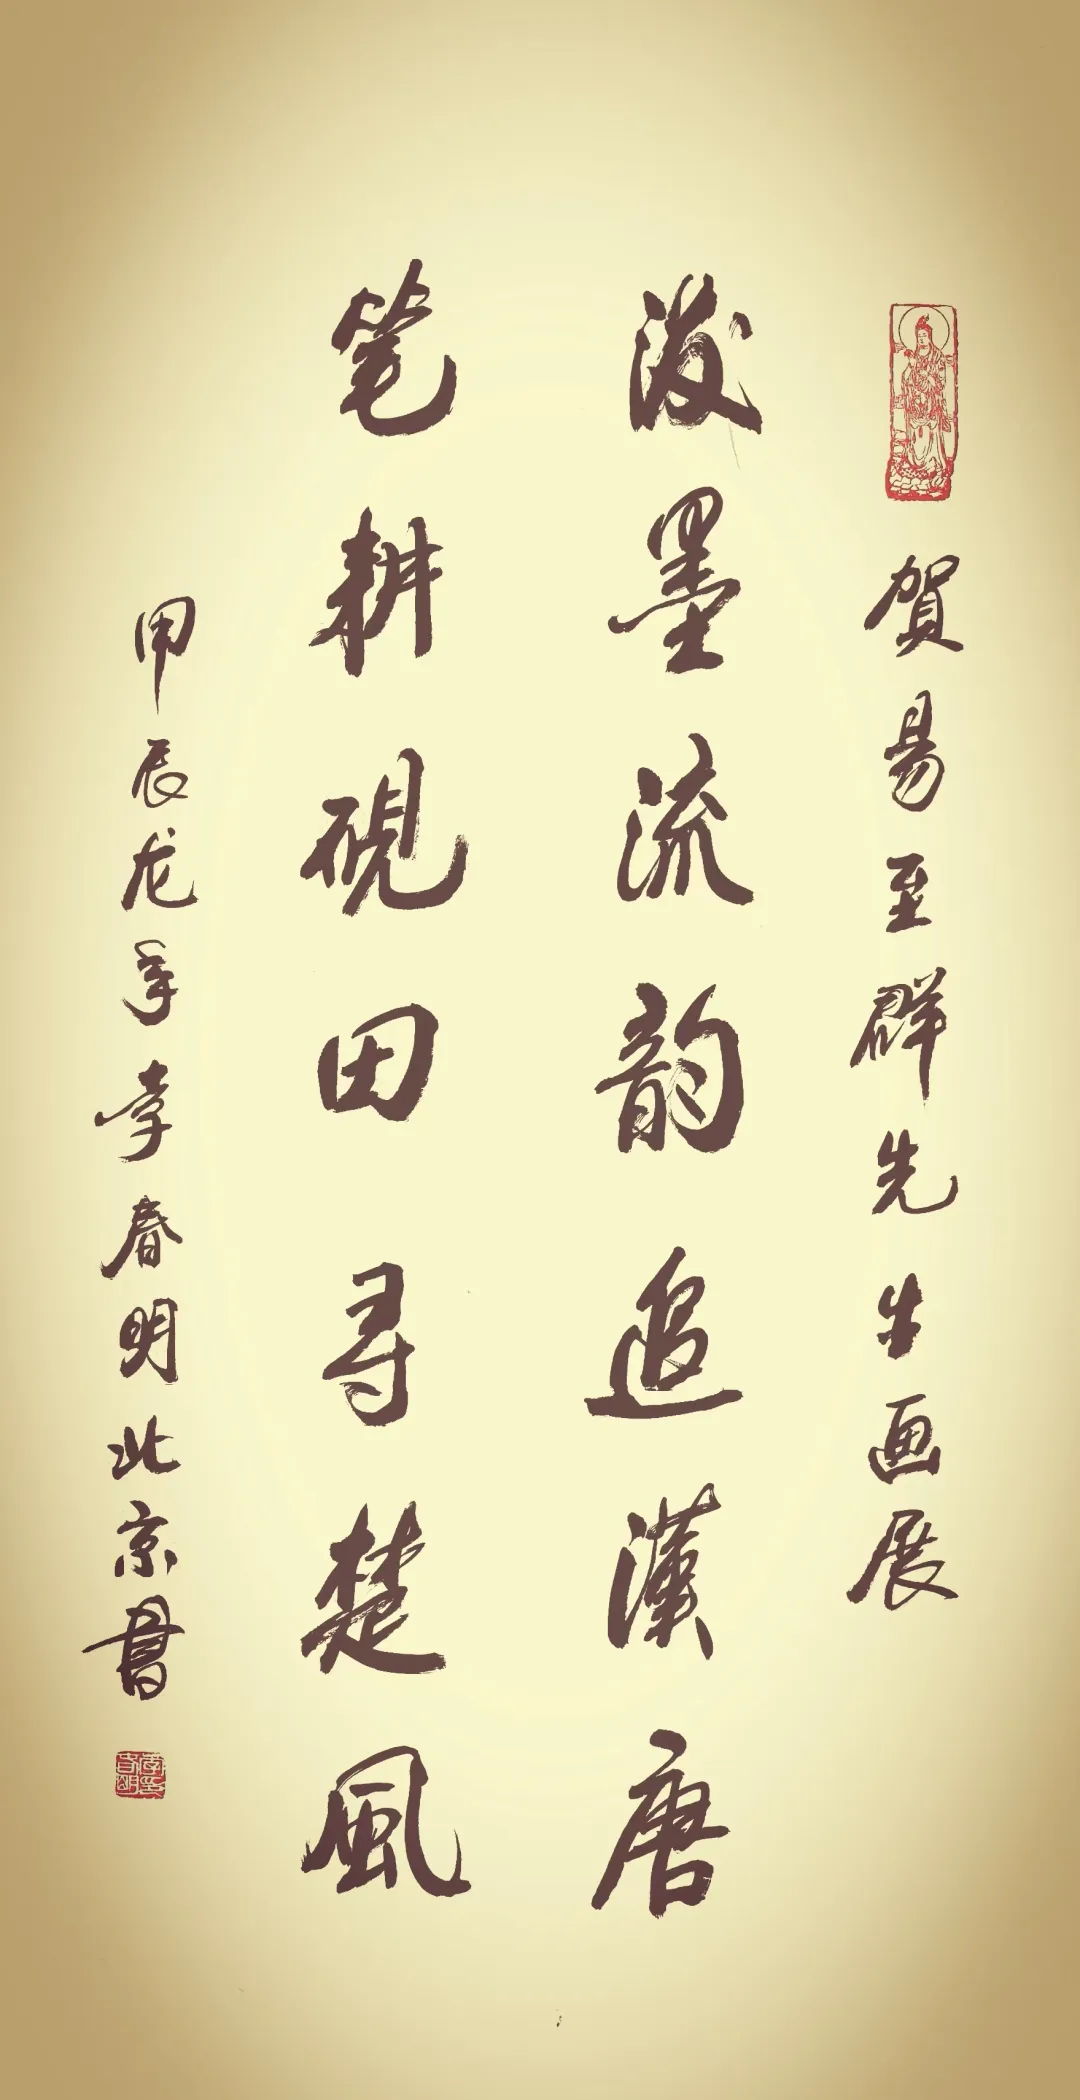 賀易至群先生画展
泼墨流韵追漢唐
笔耕硯田寻楚風
甲辰龙年李春明北京書